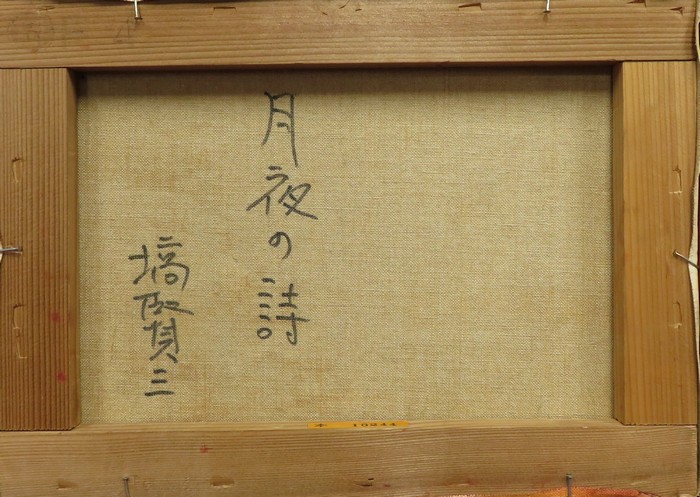 月夜の詩
塙賢三
10244